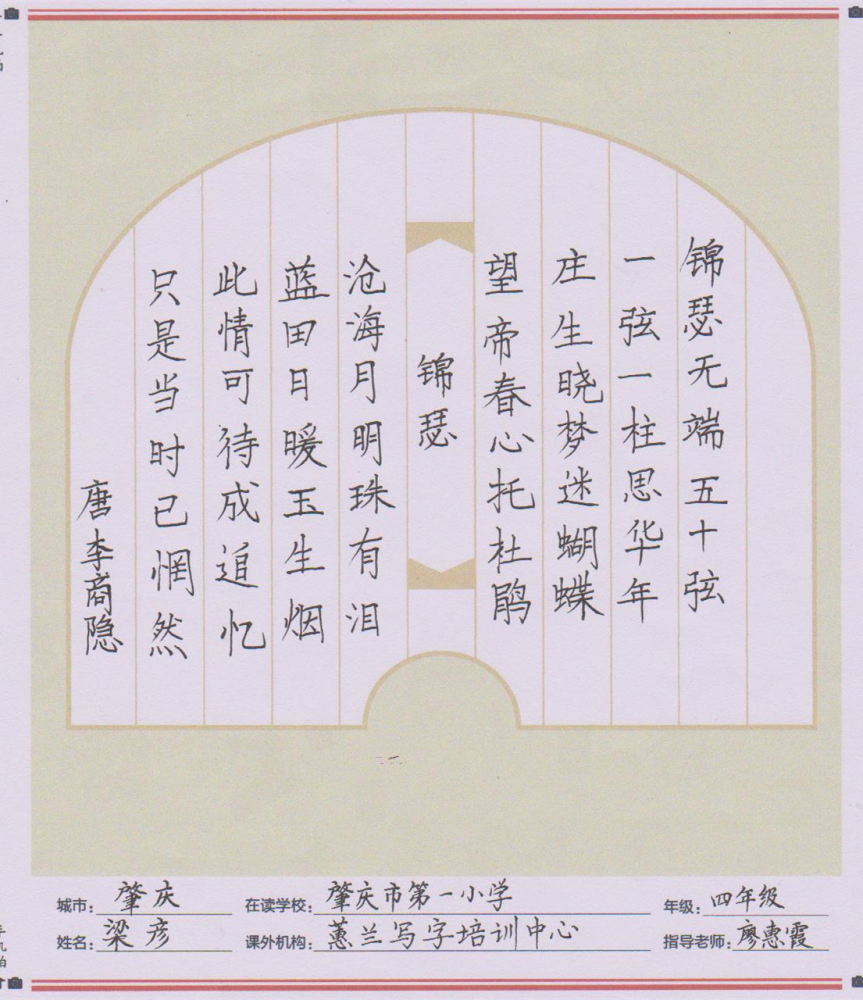 锦瑟无端五十弦
一弦一柱思华年
庄生晓梦迷蝴蝶
望帝春心托杜鹃
锦瑟
沧海月明珠有泪
蓝田日暖玉生烟
此情可待成追忆
只是当时已惘然
唐李商隐
城市：肇庆 在读学校：肇庆市第一小学 年级：四年级
姓名：梁彦 课外机构：蕙兰写字培训中心 指导老师：廖惠霞